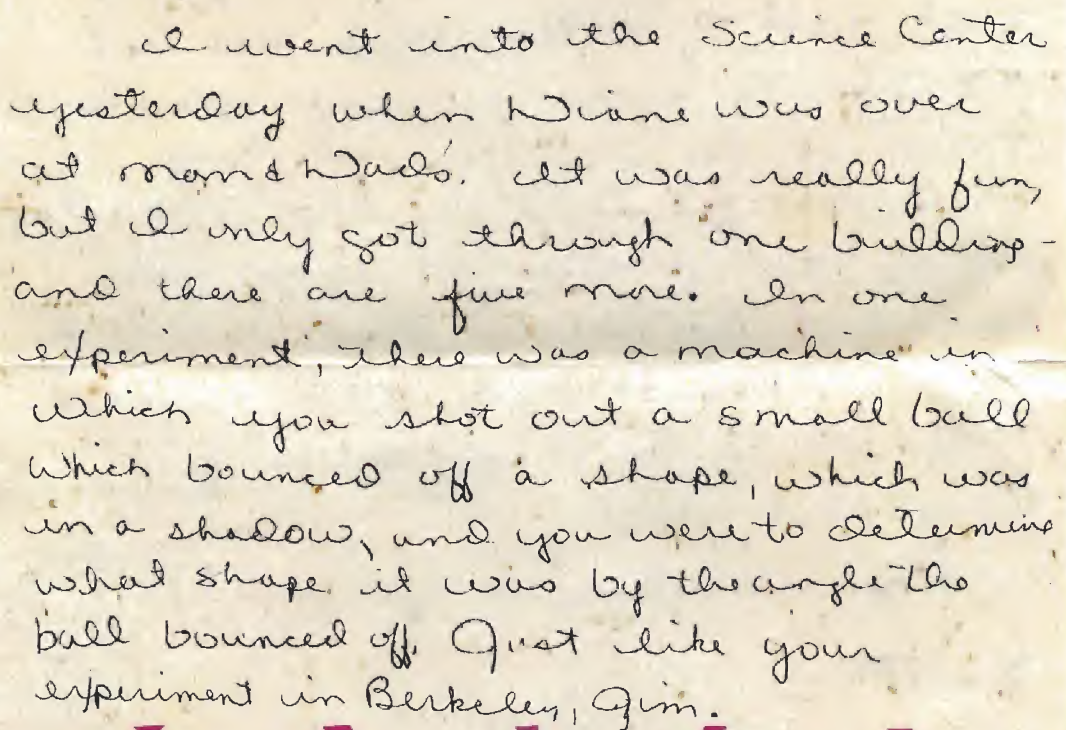 I went into the Science Center
yesterday when Diane was over
at Mom & Dad's. It was really fun,
but I only got through one building -
and there are five more. In one
experiment, there was a machine in
which you shot out a small ball
which bounced off a shape, which was
in a shadow, and you were to determine
what shape it was by the angle the
ball bounced off. Just like your
experiment in Berkeley, Jim.